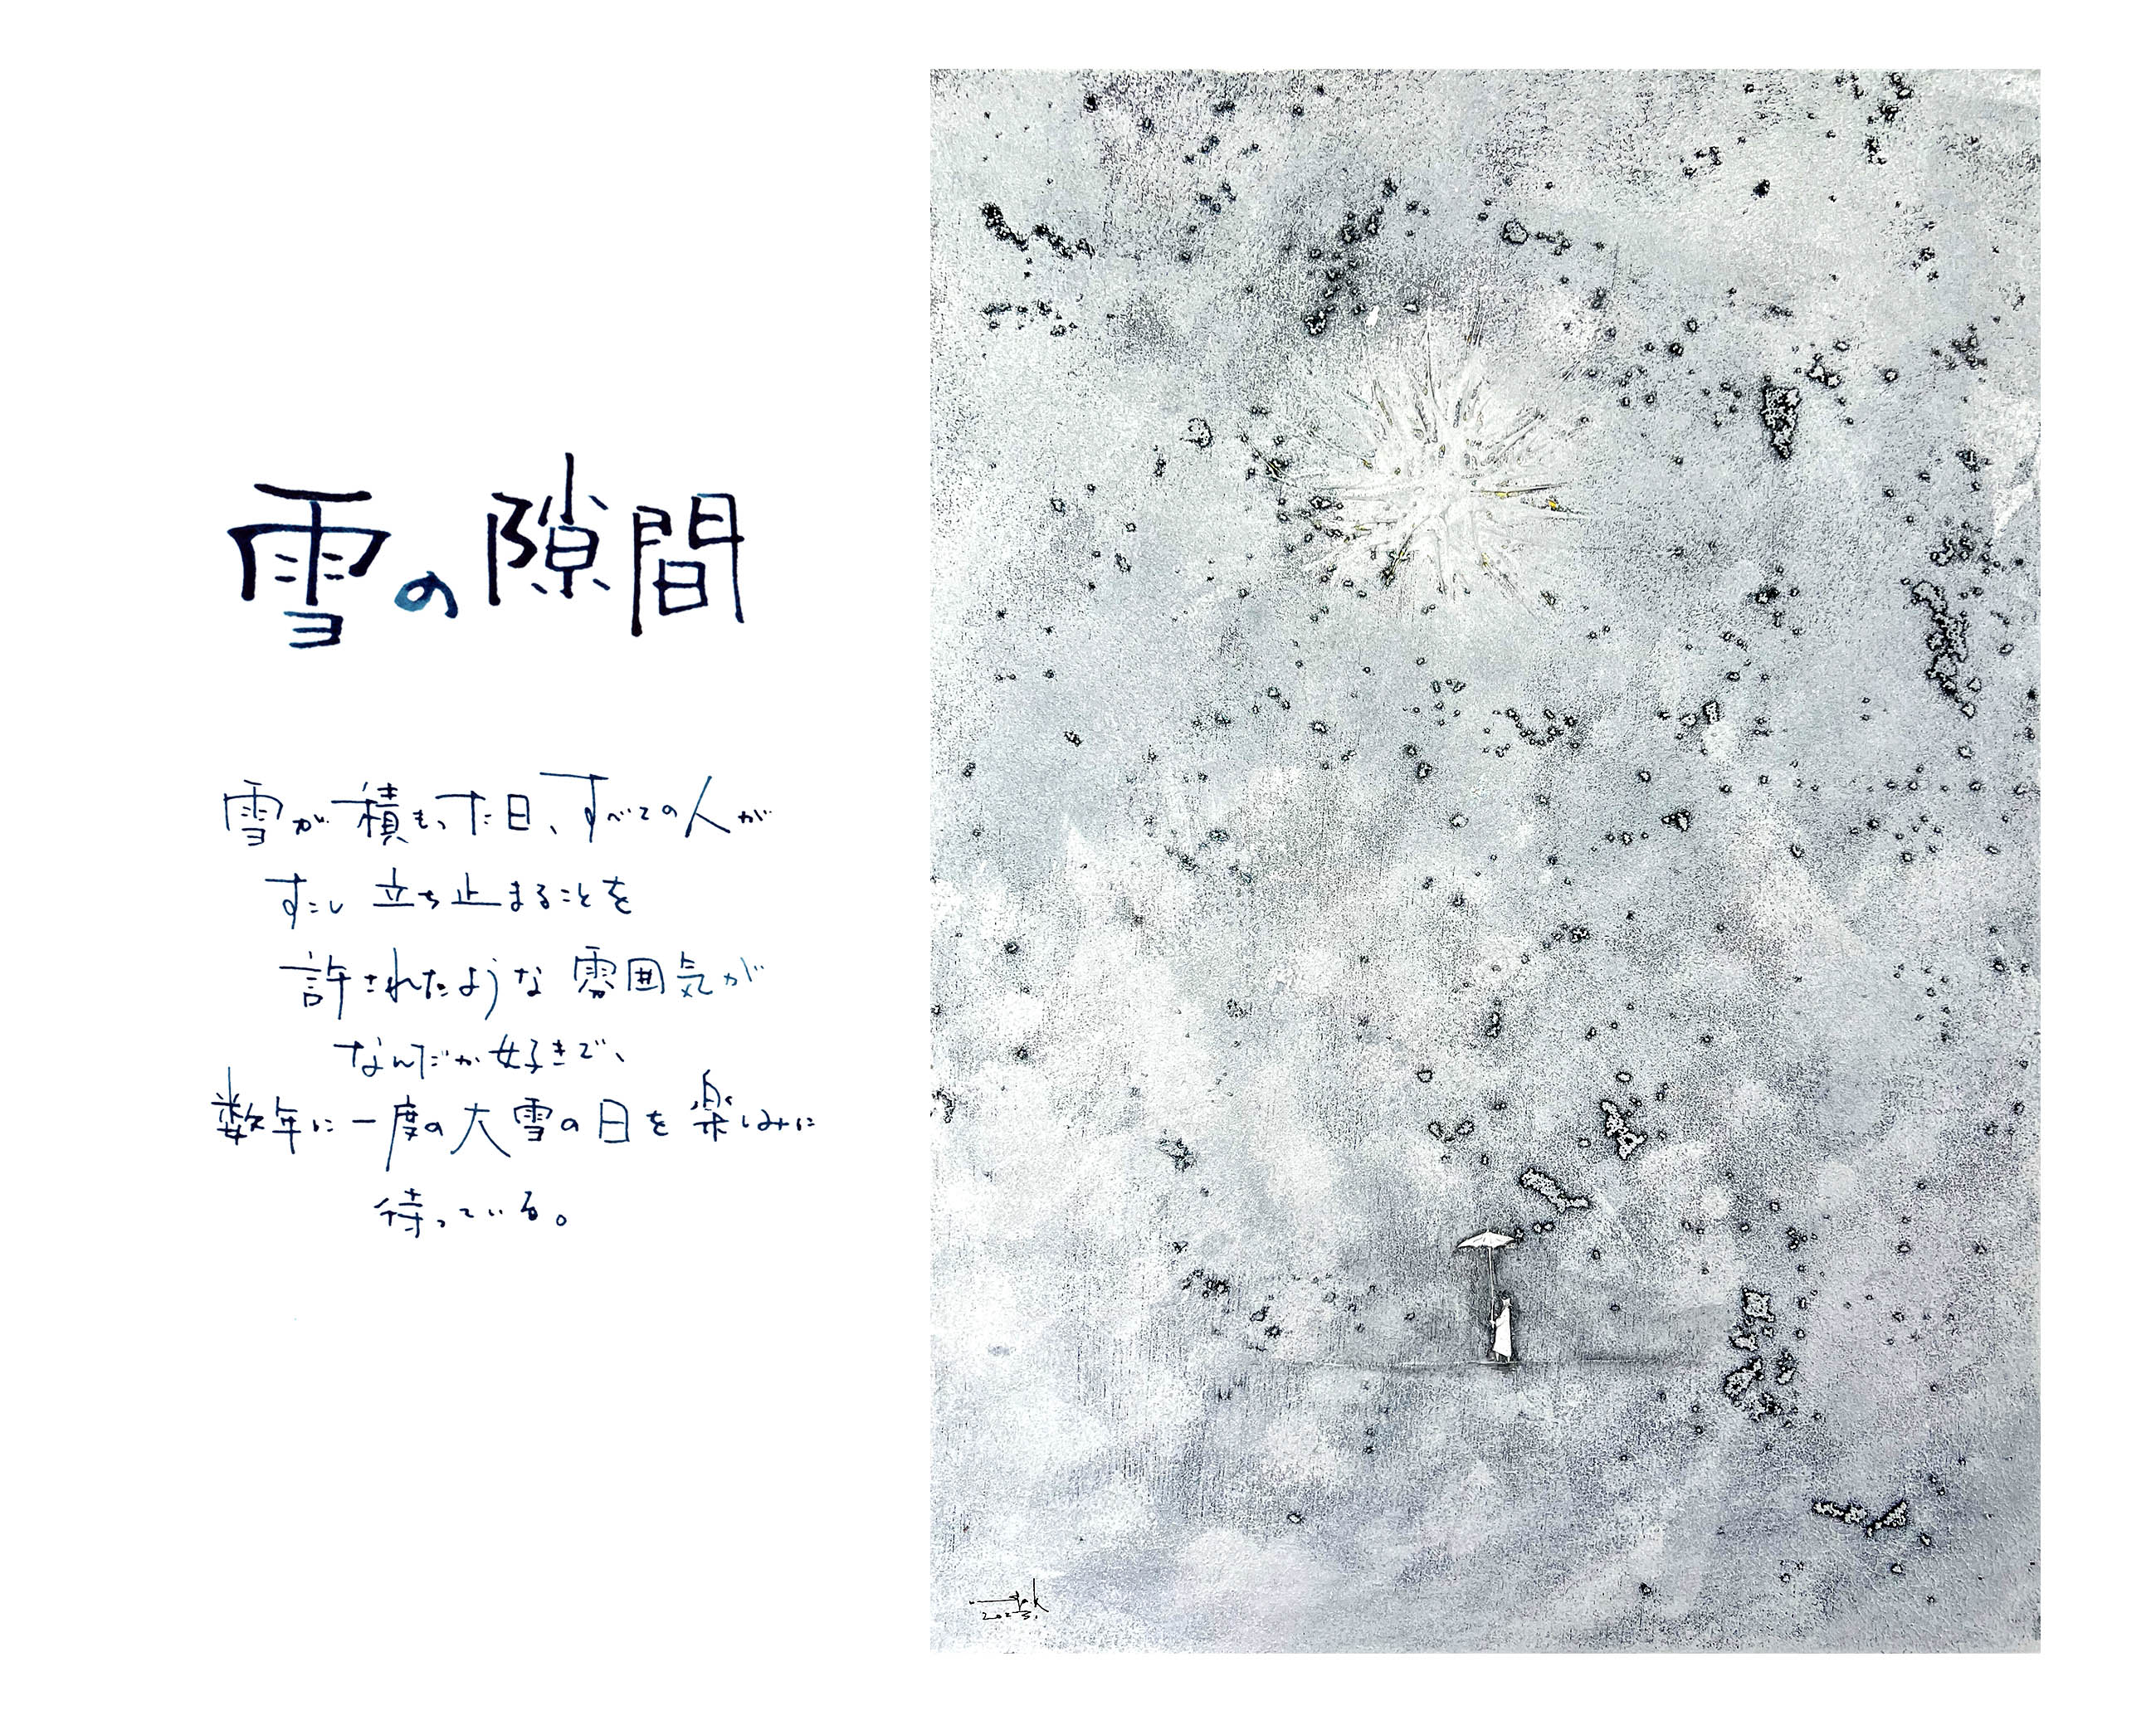 雪の隙間
雪が積もった日、すべての人が
すこし立ち止まることを
許されたような雰囲気が
なんだか好きで、
数年に一度の大雪の日を楽しみに
待っている。